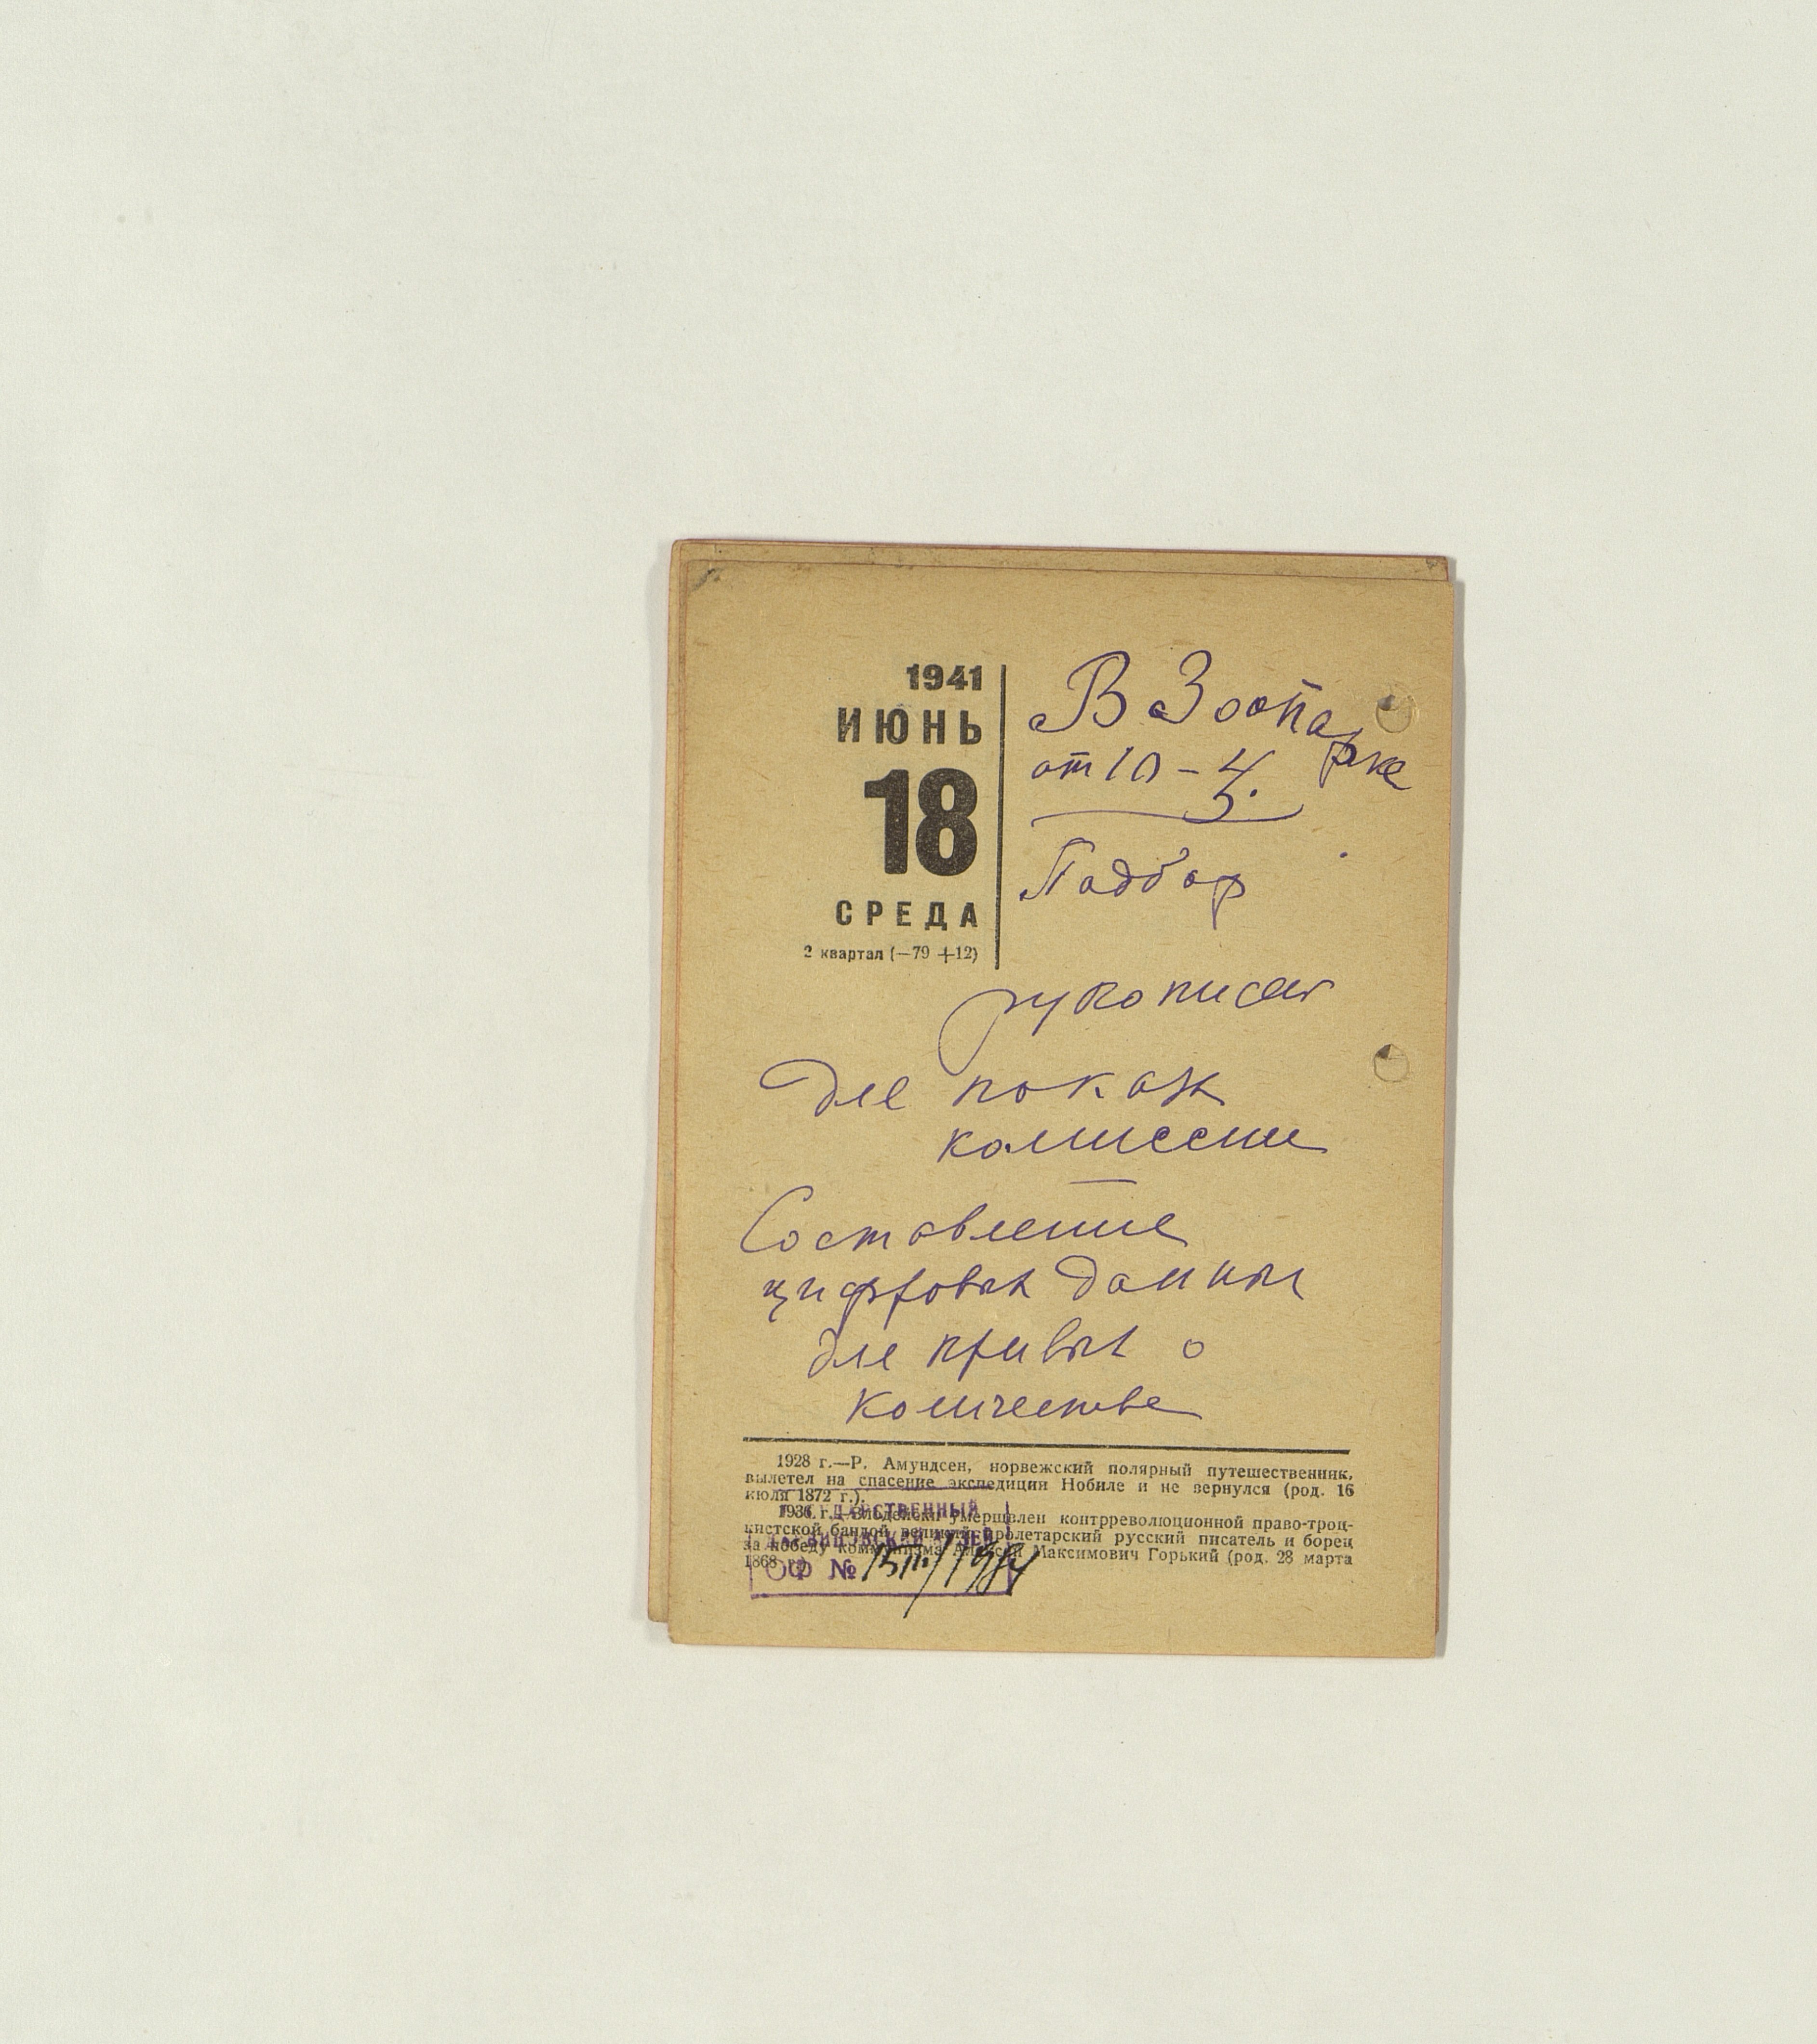 1941
ИЮНЬ
18
СРЕДА
2 квартал (—79 +12)
В Зоопарке
от 10 – 4.
Подбор
рукописей
для показ
комиссии
Составление
цифровых данных
для кривых о
количестве
1928 г.—Р. Амундсен, норвежский полярный путешественник,
вылетел на спасение экспедиции Нобиле и не вернулся (род. 16
июля 1872 г.).
1936 г.—Злодейски умерщвлен контрреволюционной право-троц-
кистской бандой великий пролетарский русский писатель и борец
за победу коммунизма Алексей Максимович Горький (род. 28 марта
1868 г.)
ГОСУДАРСТВЕННЫЙ
ДАРВИНОВСКИЙ МУЗЕЙ
ОФ №